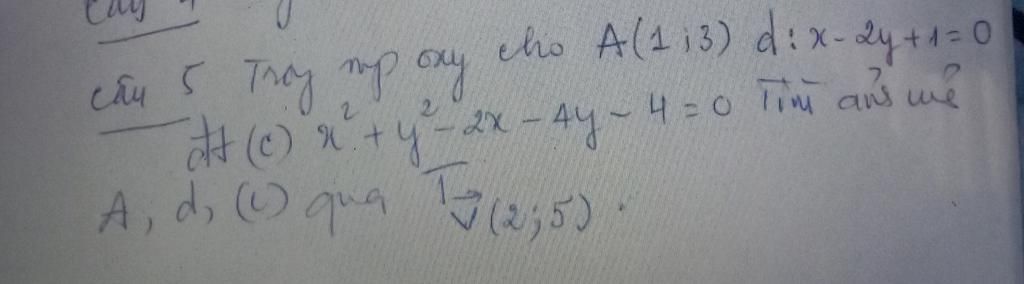 Câu 5 Trong mp oxy cho A(1;3) d: x-2y+1=0
đt (c) x²+y²-2x-4y-4=0 Tìm ảnh của
A, d, (c) qua T v⃗(2;5).